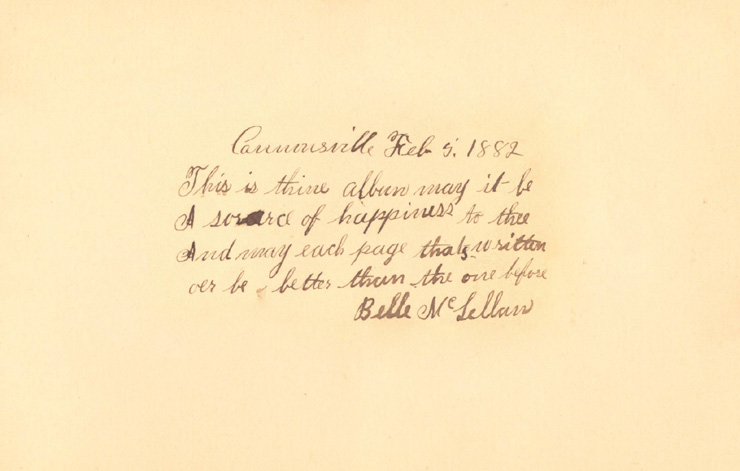 Cannonsville Feb 5, 1882
This is thine album may it be
A source of happiness to thee
And may each page thats written
oer be better than the one before
Belle McLellan